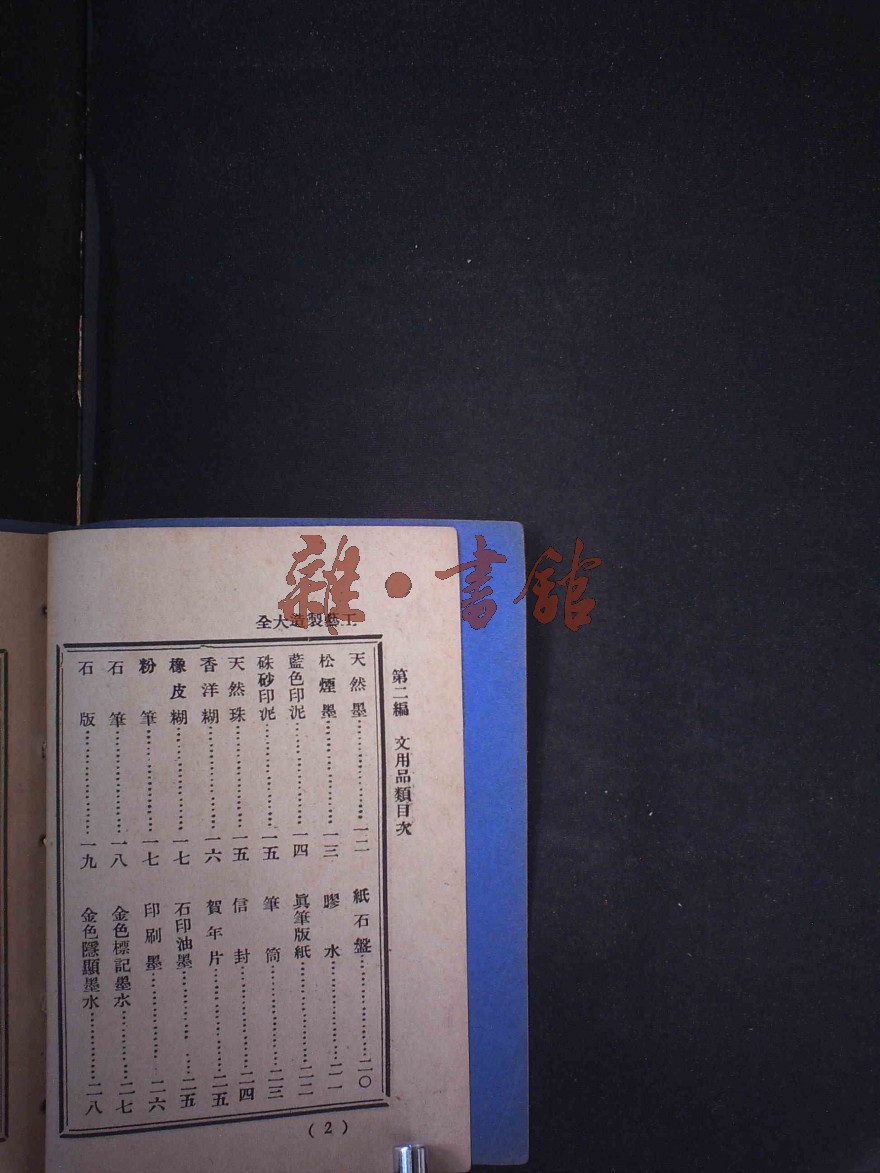 雜·書館
工藝製造大全
第二編 文用品類目次
天然墨……………一二
松煙墨……………一三
藍色印泥……………一四
硃砂印泥……………一五
天然珠……………一五
香洋糊……………一六
橡皮糊……………一七
粉筆……………一七
石筆……………一八
石版……………一九
紙石盤……………二〇
膠水……………二一
眞筆版紙……………二二
筆筒……………二三
信封……………二四
賀年片……………二五
石印油墨……………二五
印刷墨……………二六
金色標記墨水……………二七
金色隱顯墨水……………二八
(2)